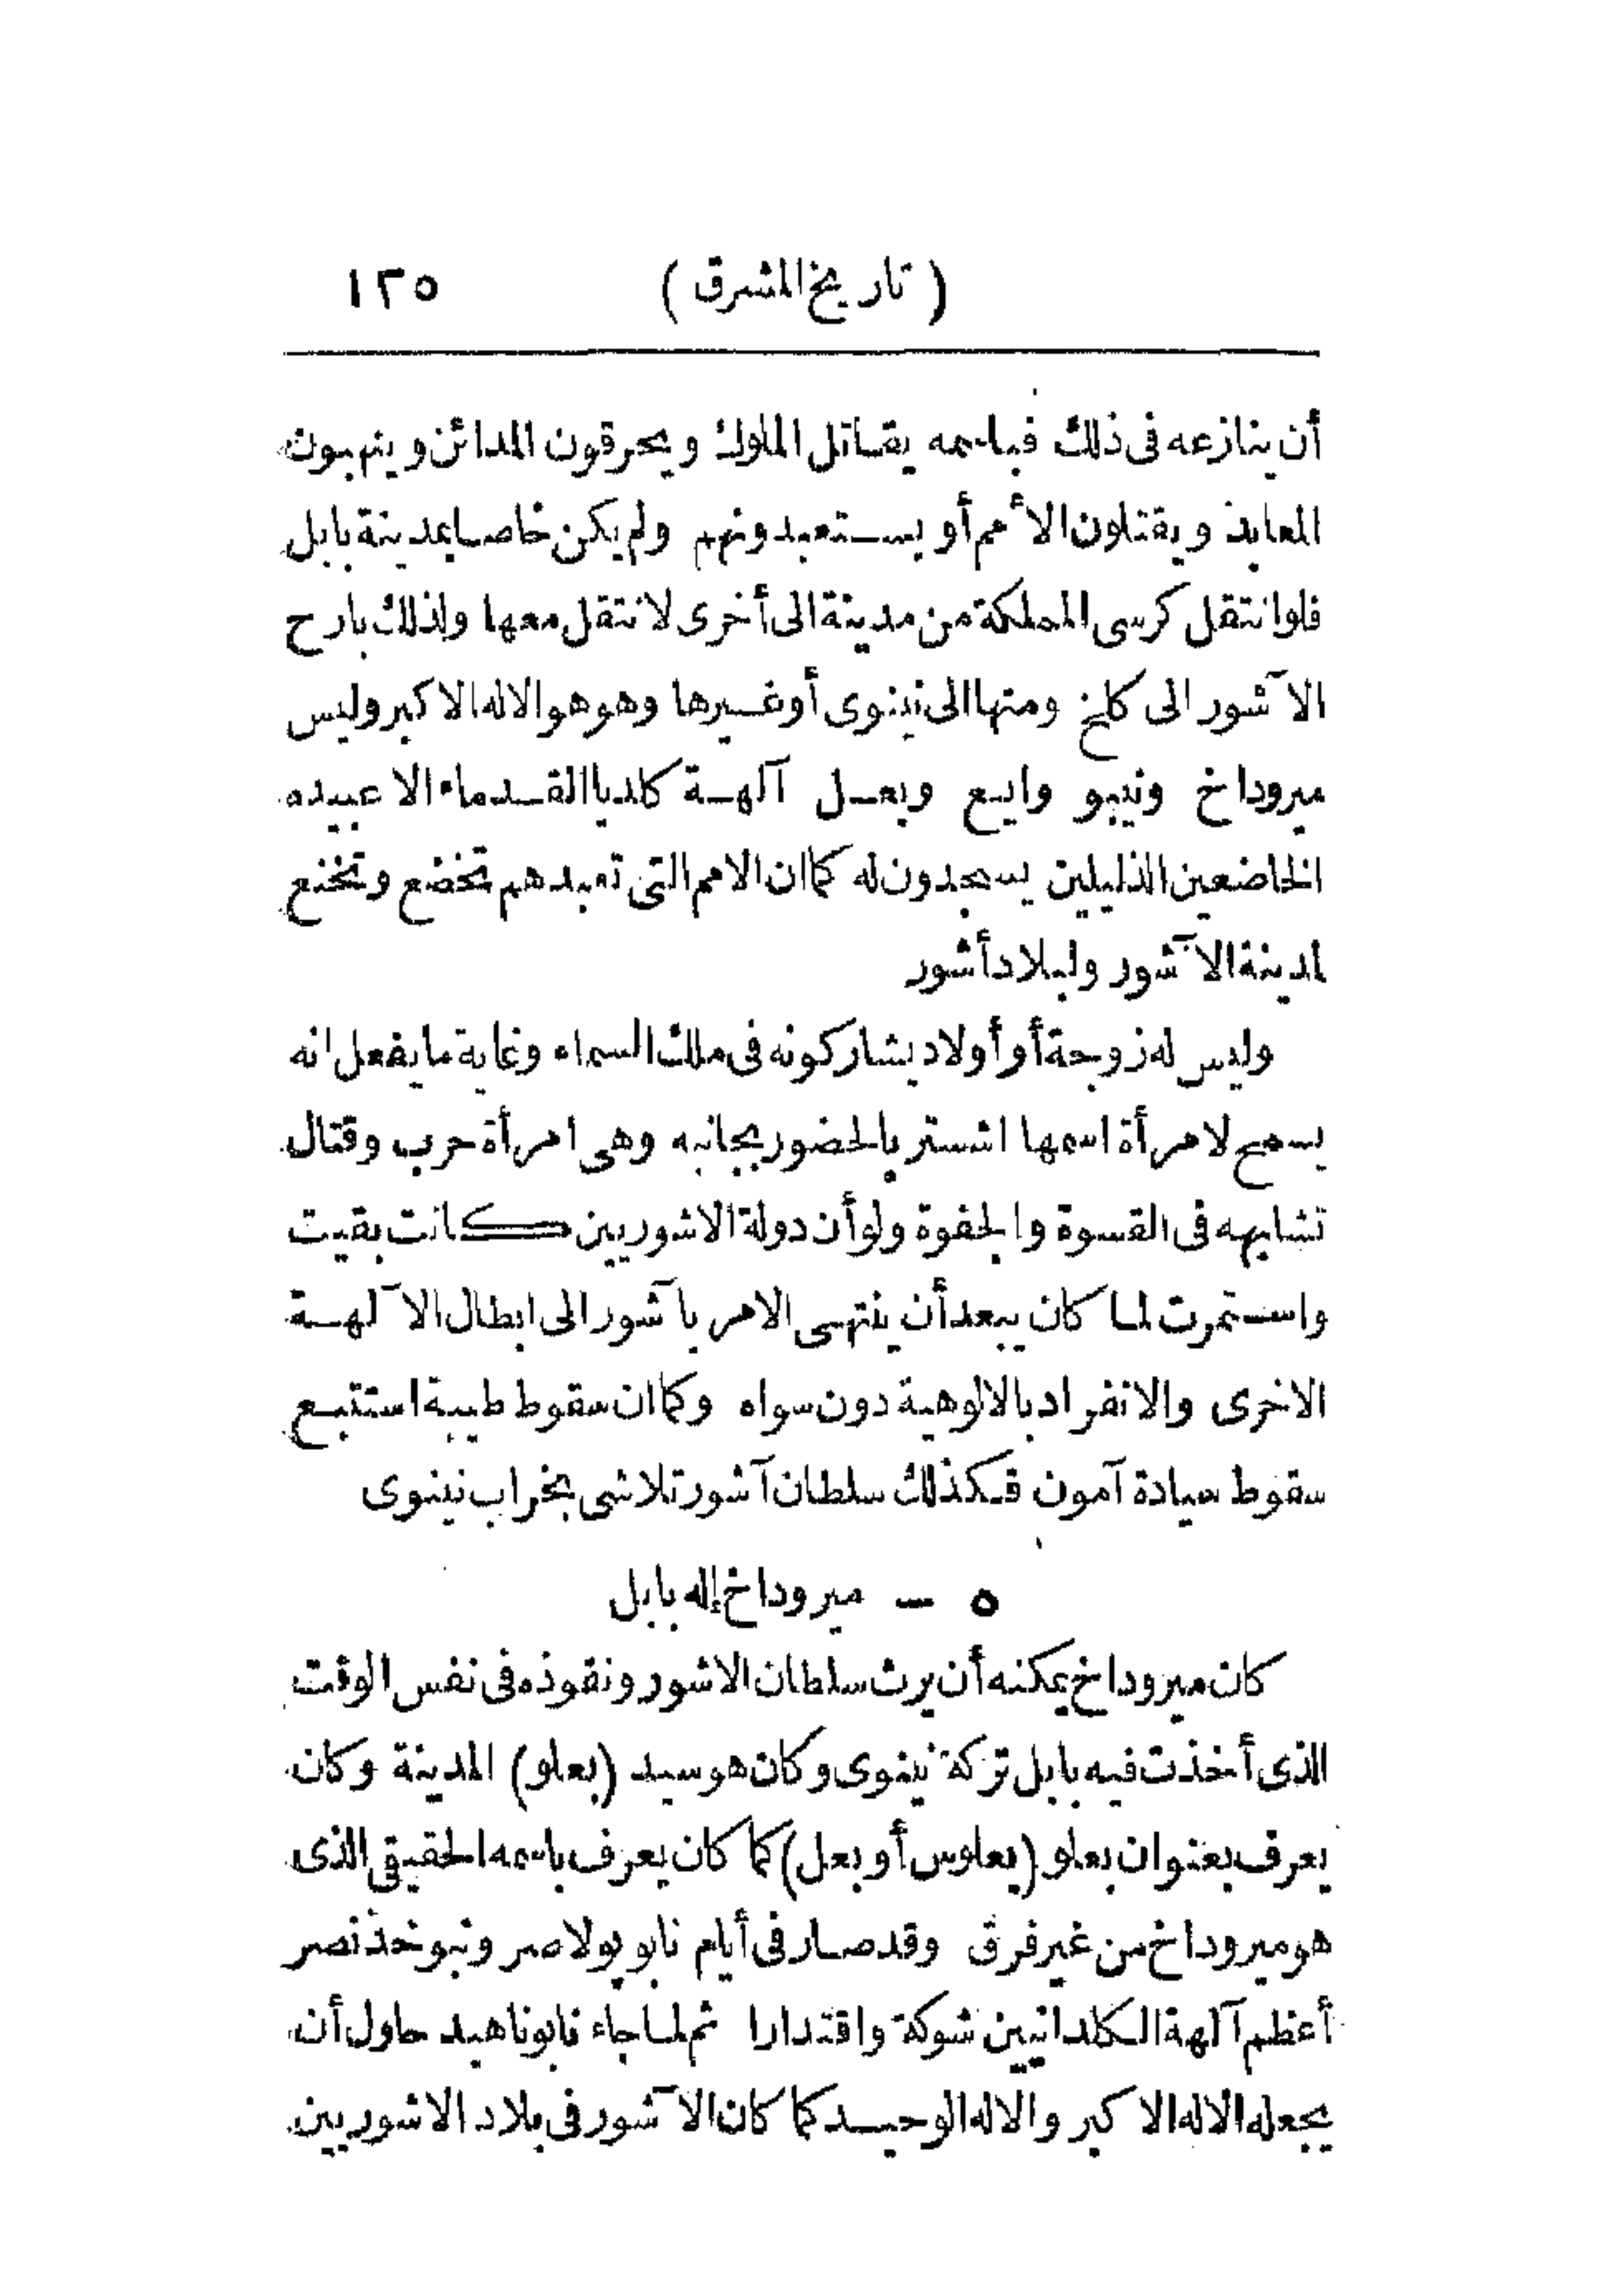 ( تاريخ المشرق ) ١٣٥
أن ينازعه فى ذلك فباسمه يقاتل الملوك ويحرقون المدائن وينهبون
المعابد ويقتلون الأمم أو يستعبدونهم ولم يكن خاصا بمدينة بابل
فلو انتقل كرسى المملكة من مدينة الى أخرى لانتقل معها ولذلك بارح
الآشور الى كلخ ومنها الى نينوى أو غيرها وهو هو الاله الاكبر وليس
ميروداخ ونيبو وايع وبعل آلهة كلديا القدماء الا عبيده
الخاضعين الذليلين يسجدون له كما ان الامم التى تعبدهم تخضع وتخنع
لمدينة الآشور ولبلاد أشور
وليس له زوجة أو أولاد يشاركونه فى ملك السماء وغاية ما يفعل انه
يسمح لامرأة اسمها اشستر بالحضور بجانبه وهى امرأة حرب وقتال
تشابهه فى القسوة والجفوة ولو أن دولة الاشوريين كانت بقيت
واستمرت لما كان يبعد أن ينتهى الامر بآشور الى ابطال الآلهة
الاخرى والانفراد بالالوهية دون سواه وكما ان سقوط طيبة استتبع
سقوط سيادة آمون فكذلك سلطان آشور تلاشى بخراب نينوى
٥ — ميروداخ إله بابل
كان ميروداخ يمكنه أن يرث سلطان الاشور ونفوذه فى نفس الوقت
الذى أخذت فيه بابل تركة نينوى وكان هو سيد (بعلو) المدينة وكان
يعرف بعنوان بعلو (بعلوس أو بعل) كما كان يعرف باسمه الحقيقى الذى
هو ميروداخ من غير فرق وقد صار فى أيام نابو پولاصر ونبوخذنصر
أعظم آلهة الكلدانيين شوكة واقتدارا ثم لما جاء نابوناهيد حاول أن
يجعله الاله الاكبر والاله الوحيد كما كان الآشور فى بلاد الاشوريين